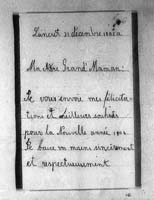 Lancret 31 décembre 1902
Ma chère Grand'Maman:
Je vous envoie mes félicita-
tions et meilleurs souhaits
pour la Nouvelle année 190
Je baise vos mains sincèrement
et respectueusement